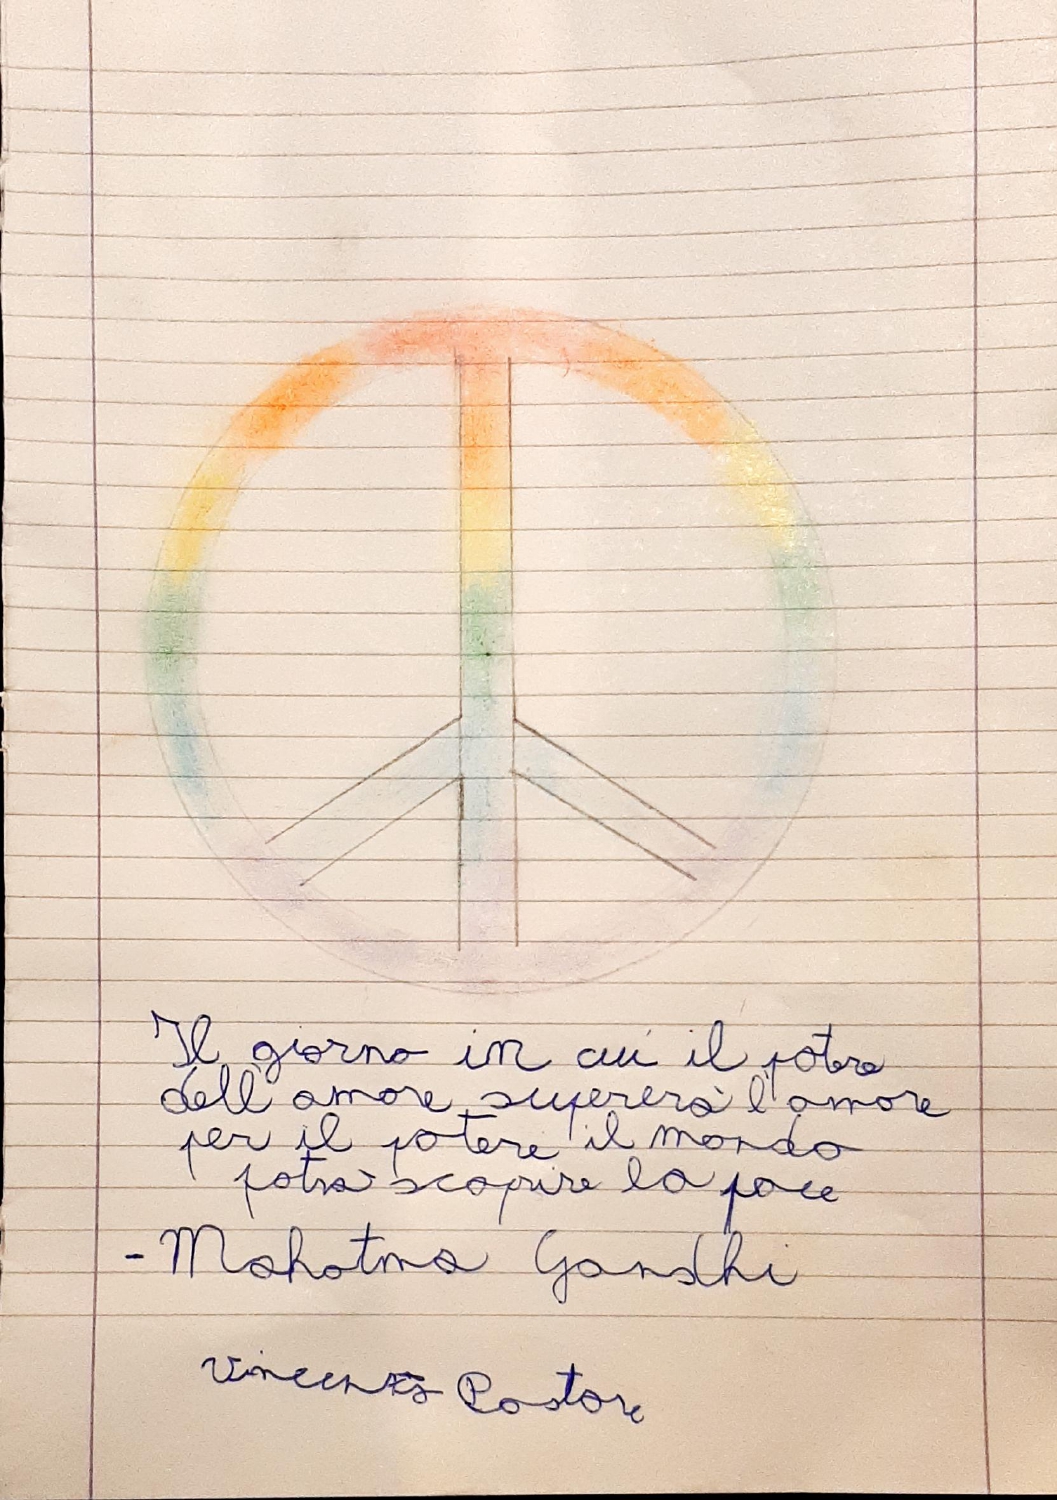 Il giorno in cui il potere
dell'amore supererà l'amore
per il potere il mondo
potrà scoprire la pace
- Mahatma Gandhi
Vincenzo Pastore